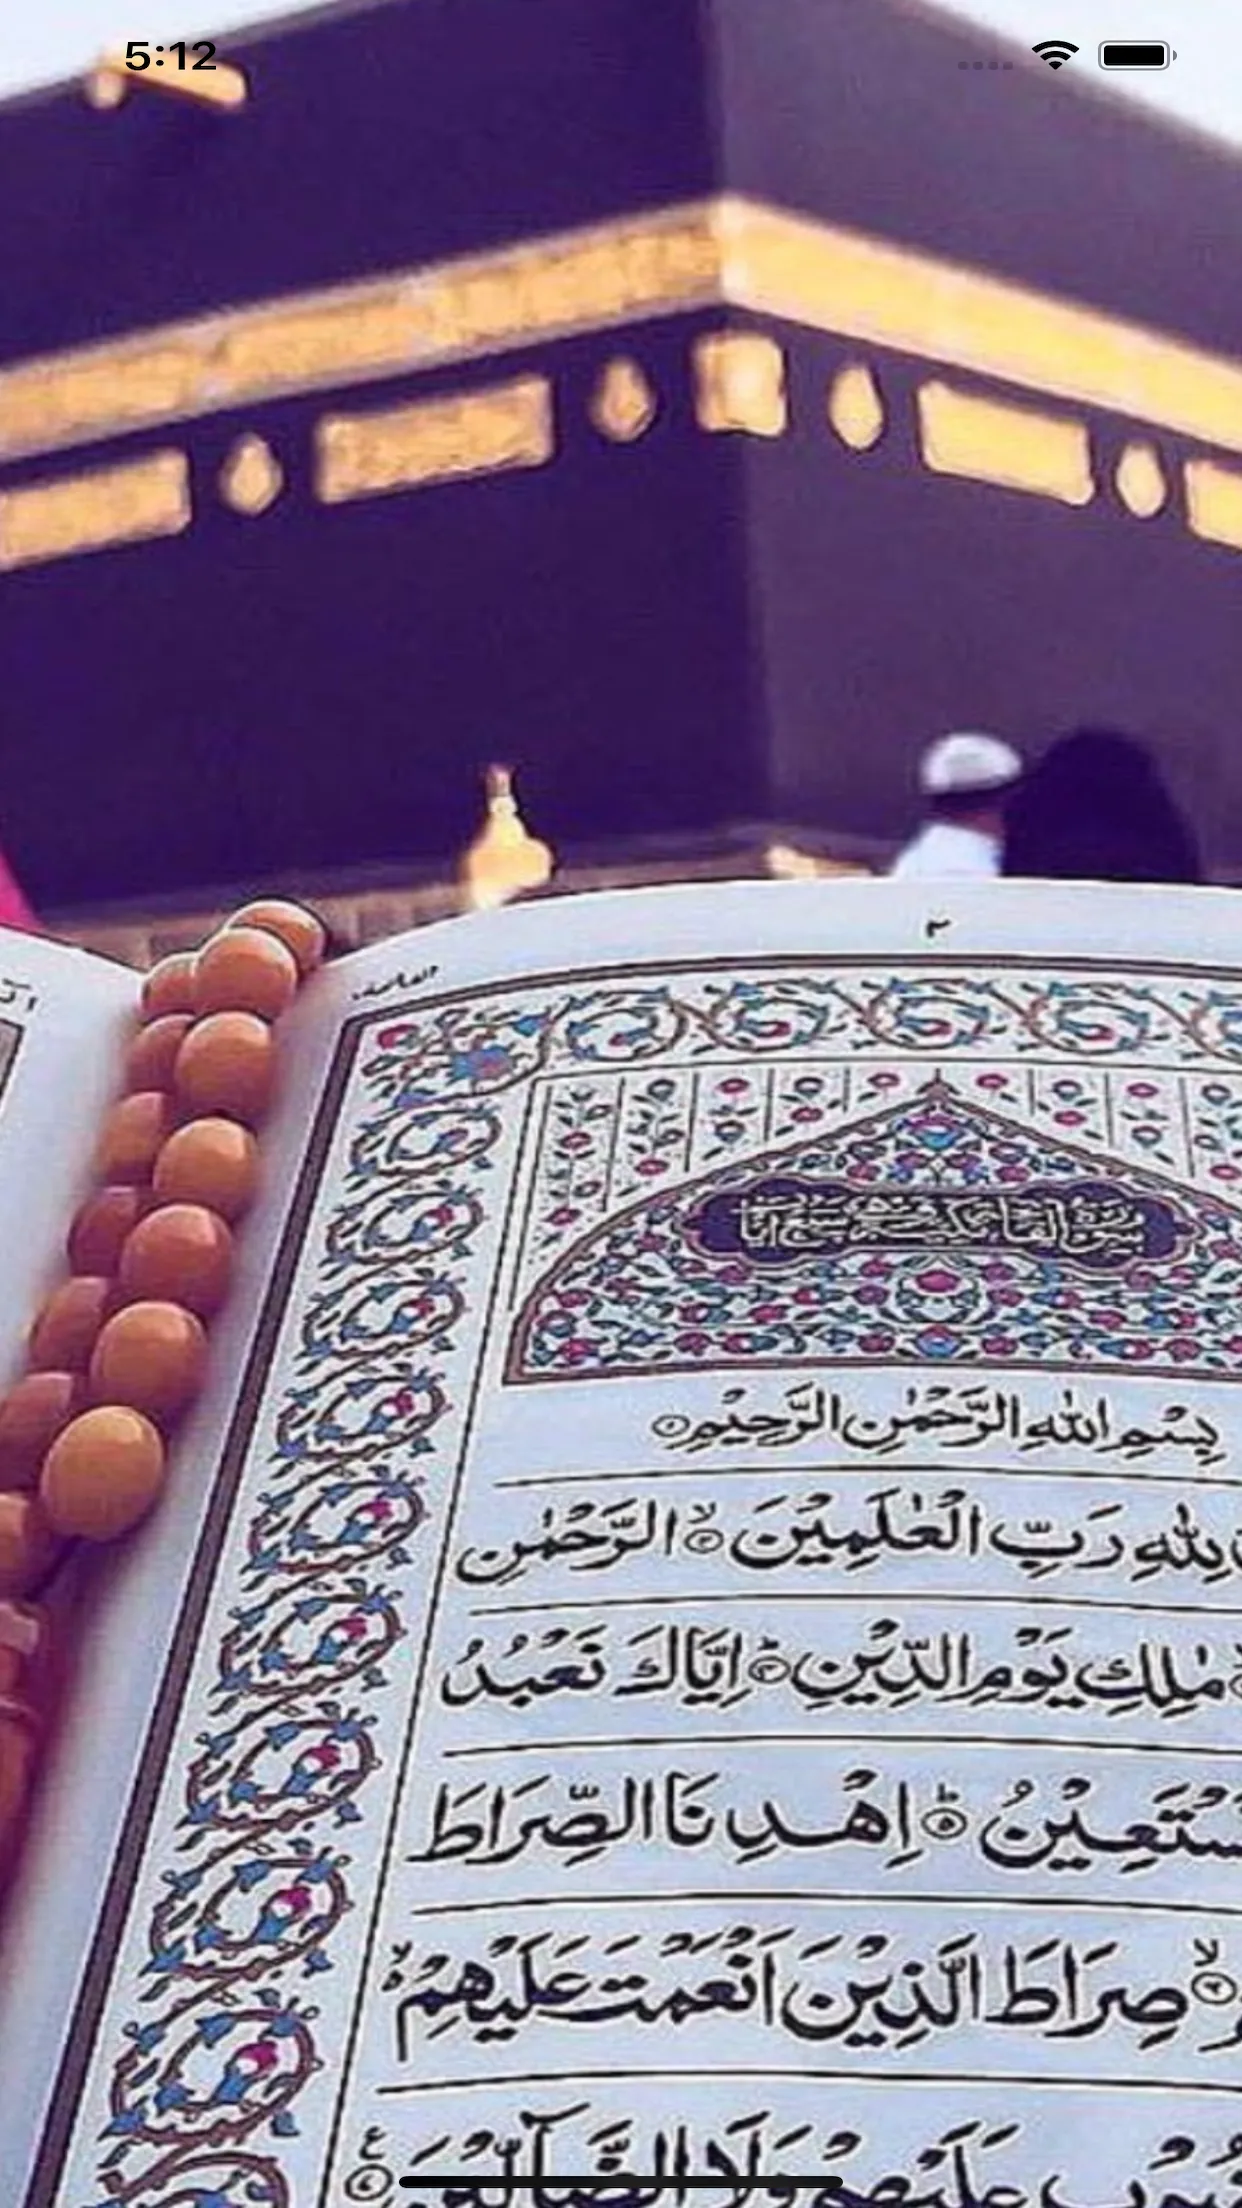 5:12
٢
الفاتحة ١
بِسْمِ اللّٰهِ الرَّحْمٰنِ الرَّحِيْمِ ۝١
لِلّٰهِ رَبِّ الْعٰلَمِيْنَ ۝٢ الرَّحْمٰنِ
مٰلِكِ يَوْمِ الدِّيْنِ ۝٣ اِيَّاكَ نَعْبُدُ
اِهْدِنَا الصِّرَاطَ
صِرَاطَ الَّذِيْنَ اَنْعَمْتَ عَلَيْهِمْ
عَلَيْهِمْ وَلَا الضَّآلِّيْنَ